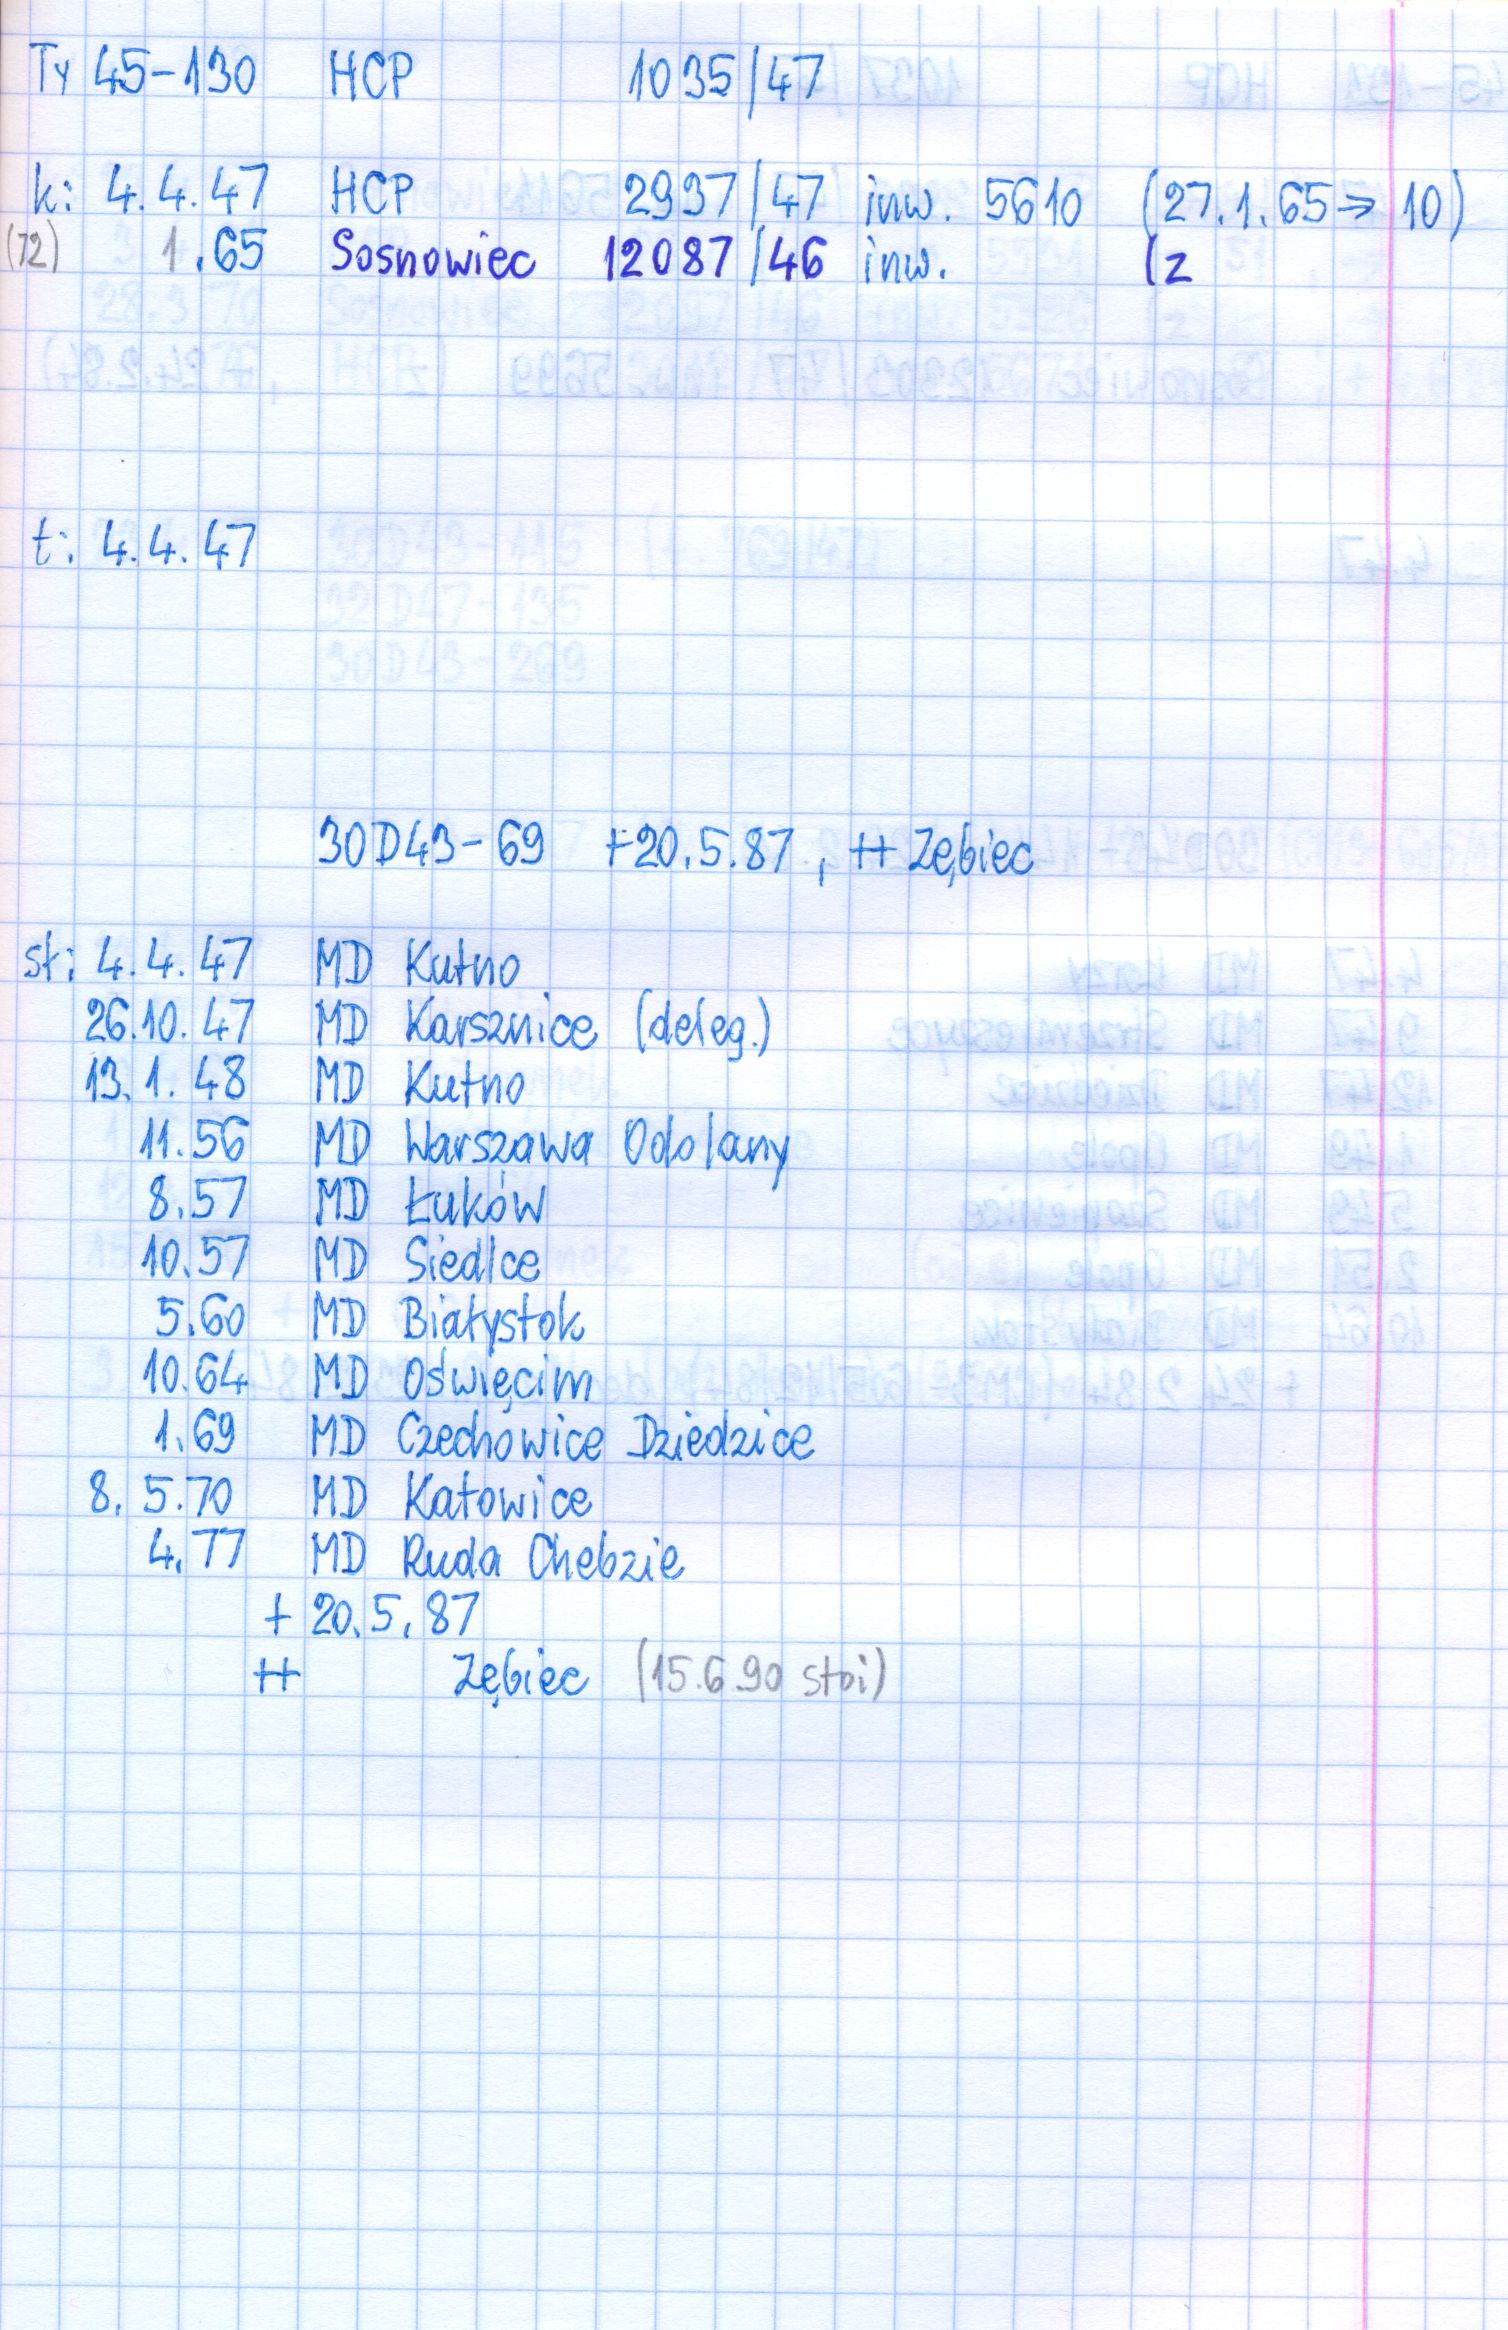 Ty 45-130 HCP 1035/47
k: 4.4.47 HCP 2937/47 inw. 5610 (27.1.65→ 10)
(72) 1.65 Sosnowiec 12087/46 inw. (z
t: 4.4.47
30D43-69 +20.5.87, ++ Zębiec
st: 4.4.47 MD Kutno
26.10.47 MD Karsznice (deleg.)
13.1.48 MD Kutno
11.56 MD Warszawa Odolany
8.57 MD Łuków
10.57 MD Siedlce
5.60 MD Białystok
10.64 MD Oświęcim
1.69 MD Czechowice Dziedzice
8.5.70 MD Katowice
4.77 MD Ruda Chebzie
+ 20.5.87
++ Zębiec (15.6.90 stoi)